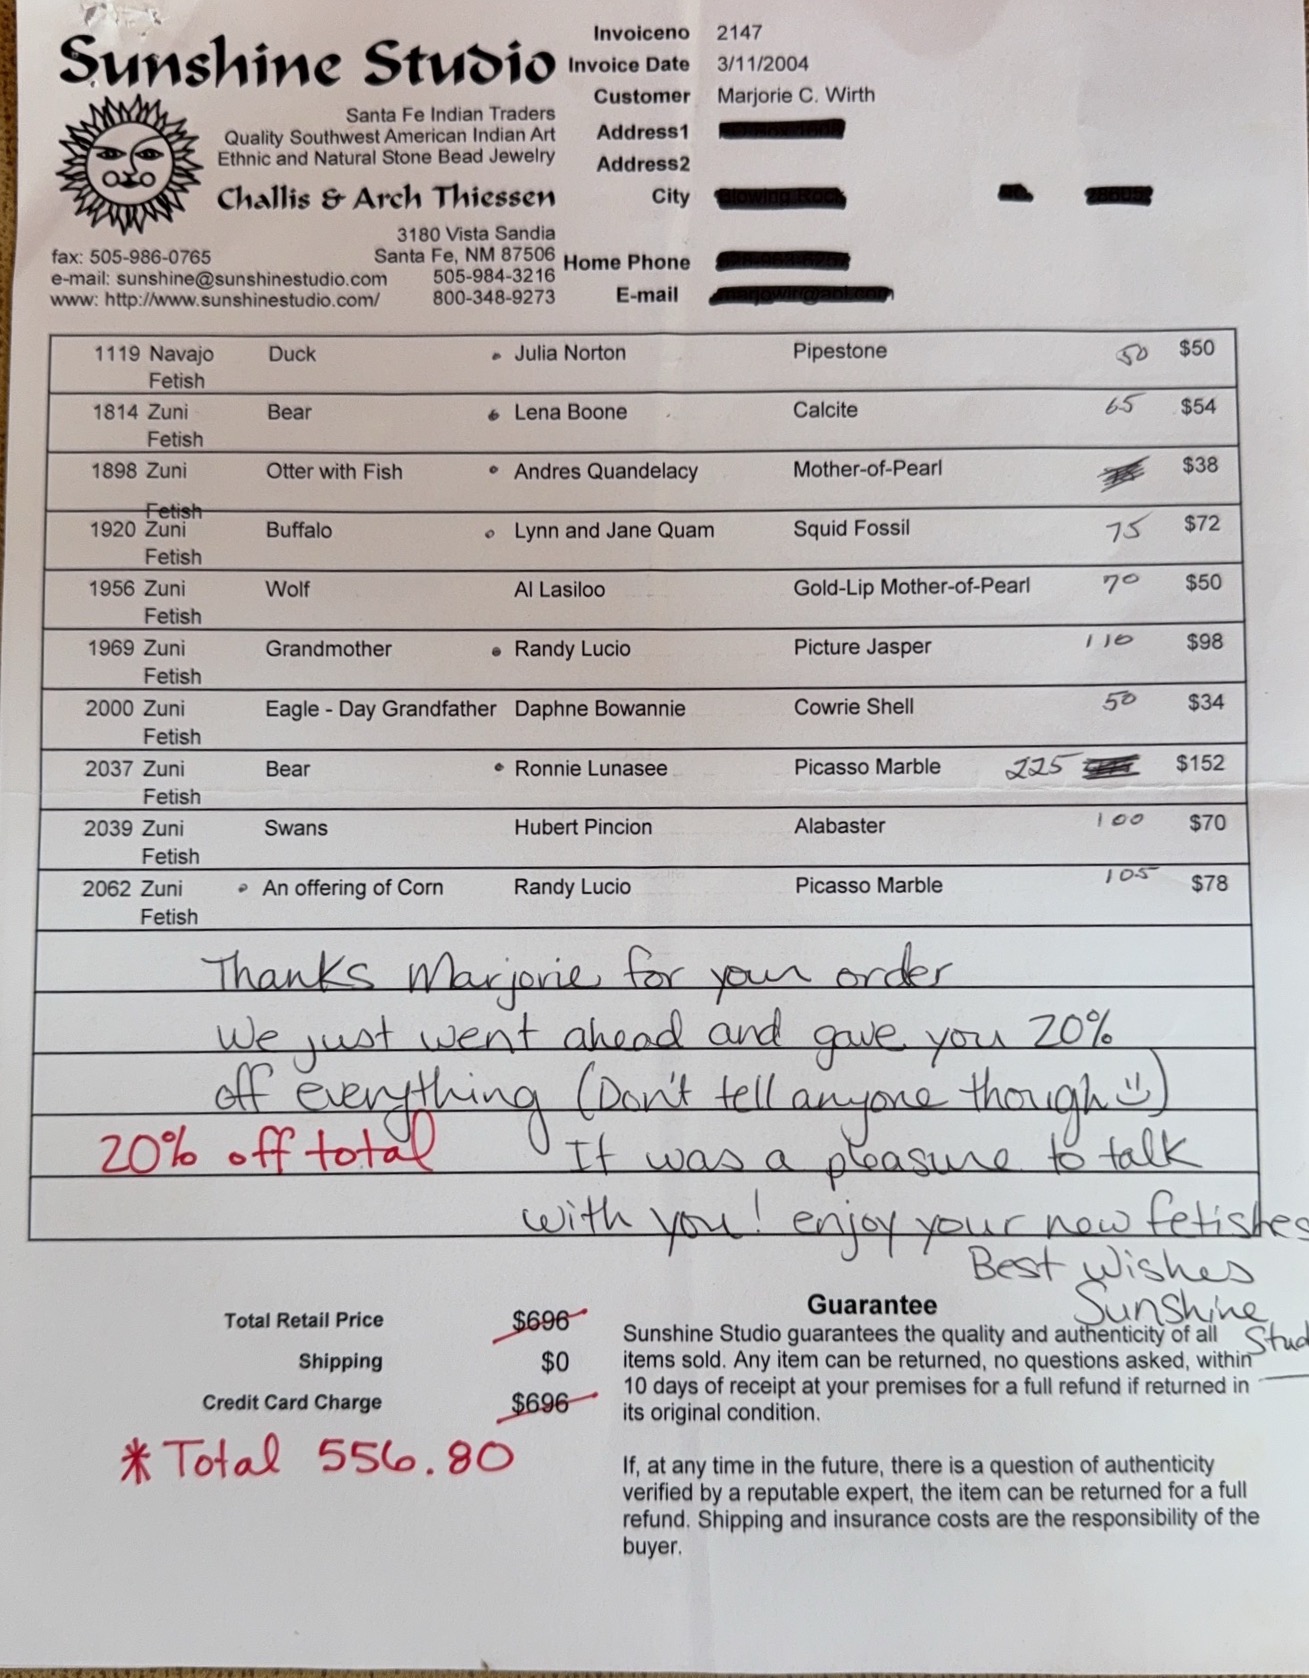 Sunshine Studio
Santa Fe Indian Traders
Quality Southwest American Indian Art
Ethnic and Natural Stone Bead Jewelry
Challis & Arch Thiessen
3180 Vista Sandia
fax: 505-986-0765 Santa Fe, NM 87506
e-mail: sunshine@sunshinestudio.com 505-984-3216
www: http://www.sunshinestudio.com/ 800-348-9273
Invoiceno 2147
Invoice Date 3/11/2004
Customer Marjorie C. Wirth
Address1
Address2
City
Home Phone
E-mail
1119 Navajo Duck Julia Norton Pipestone 50 $50
Fetish
1814 Zuni Bear Lena Boone Calcite 65 $54
Fetish
1898 Zuni Otter with Fish Andres Quandelacy Mother-of-Pearl $38
Fetish
1920 Zuni Buffalo Lynn and Jane Quam Squid Fossil 75 $72
Fetish
1956 Zuni Wolf Al Lasiloo Gold-Lip Mother-of-Pearl 70 $50
Fetish
1969 Zuni Grandmother Randy Lucio Picture Jasper 110 $98
Fetish
2000 Zuni Eagle - Day Grandfather Daphne Bowannie Cowrie Shell 50 $34
Fetish
2037 Zuni Bear Ronnie Lunasee Picasso Marble 225 $152
Fetish
2039 Zuni Swans Hubert Pincion Alabaster 100 $70
Fetish
2062 Zuni An offering of Corn Randy Lucio Picasso Marble 105 $78
Fetish
Thanks Marjorie for your order
We just went ahead and gave you 20%
off everything (Don't tell anyone though)
20% off total It was a pleasure to talk
with you! enjoy your new fetishes
Best Wishes
Sunshine
Stud
Total Retail Price $696
Shipping $0
Credit Card Charge $696
* Total 556.80
Guarantee
Sunshine Studio guarantees the quality and authenticity of all
items sold. Any item can be returned, no questions asked, within
10 days of receipt at your premises for a full refund if returned in
its original condition.
If, at any time in the future, there is a question of authenticity
verified by a reputable expert, the item can be returned for a full
refund. Shipping and insurance costs are the responsibility of the
buyer.